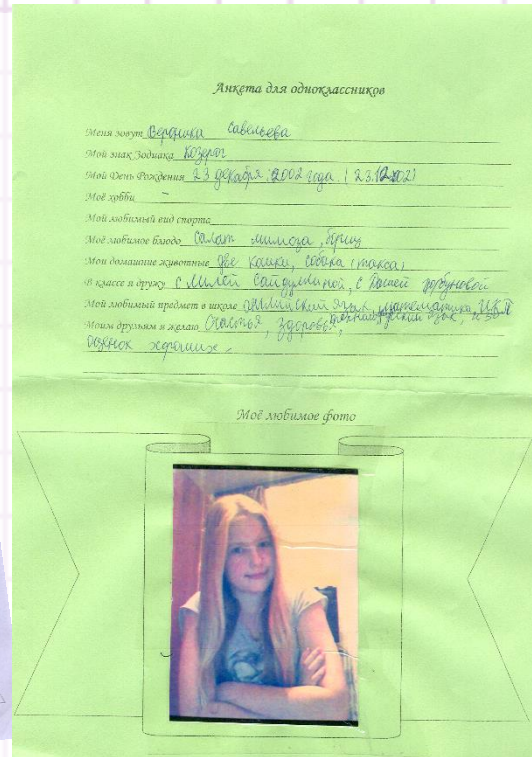 Анкета для одноклассников
Меня зовут Вероника Савельева
Мой знак Зодиака Козерог
Мой День Рождения 23 декабря 2002 года. (23.12.2002)
Моё хобби -
Мой любимый вид спорта
Моё любимое блюдо Салат мимоза, борщ
Мои домашние животные две кошки, собака (такса)
В классе я дружу с Милей Сайдулиной, с Дашей Горбуновой
Мой любимый предмет в школе английский язык, математика, ИЗО
Моим друзьям я желаю Счастья, Здоровья,
оценок хороших.
Моё любимое фото